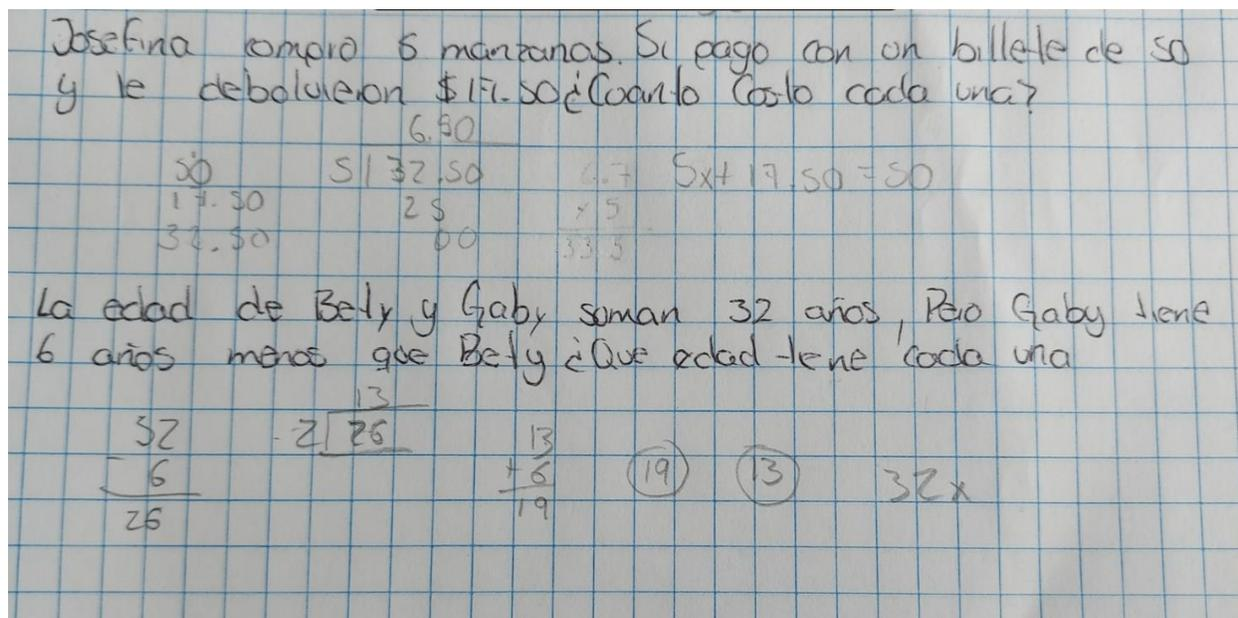 Josefina compro 5 manzanas. Si pago con un billete de 50
y le debolvieron $17.50 ¿Cuanto Costo cada una?
6.50
50 5 32.50 6.7 5x+17.50=50
17.50 25 x 5
32.50 00 33.5
La edad de Bety y Gaby suman 32 años, Pero Gaby tiene
6 años menos que Bety ¿Que edad tene cada una
13
32 2 26 13
- 6 + 6 19 13 32x
26 19